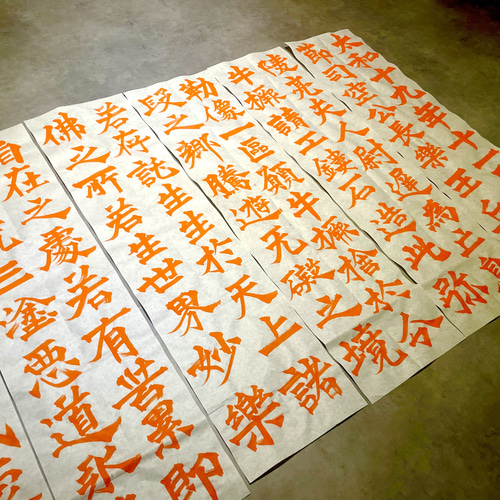 太和十九年十一
節司空公長樂王
陵亮夫人尉遲為
牛橛請工鏤石造此弥
勒像一區願牛橛捨於分
段之鄉騰遊无礙之境
若存託生生於天上諸
佛之所若生世界妙樂
自在之處若有苦累即
三塗悪道永